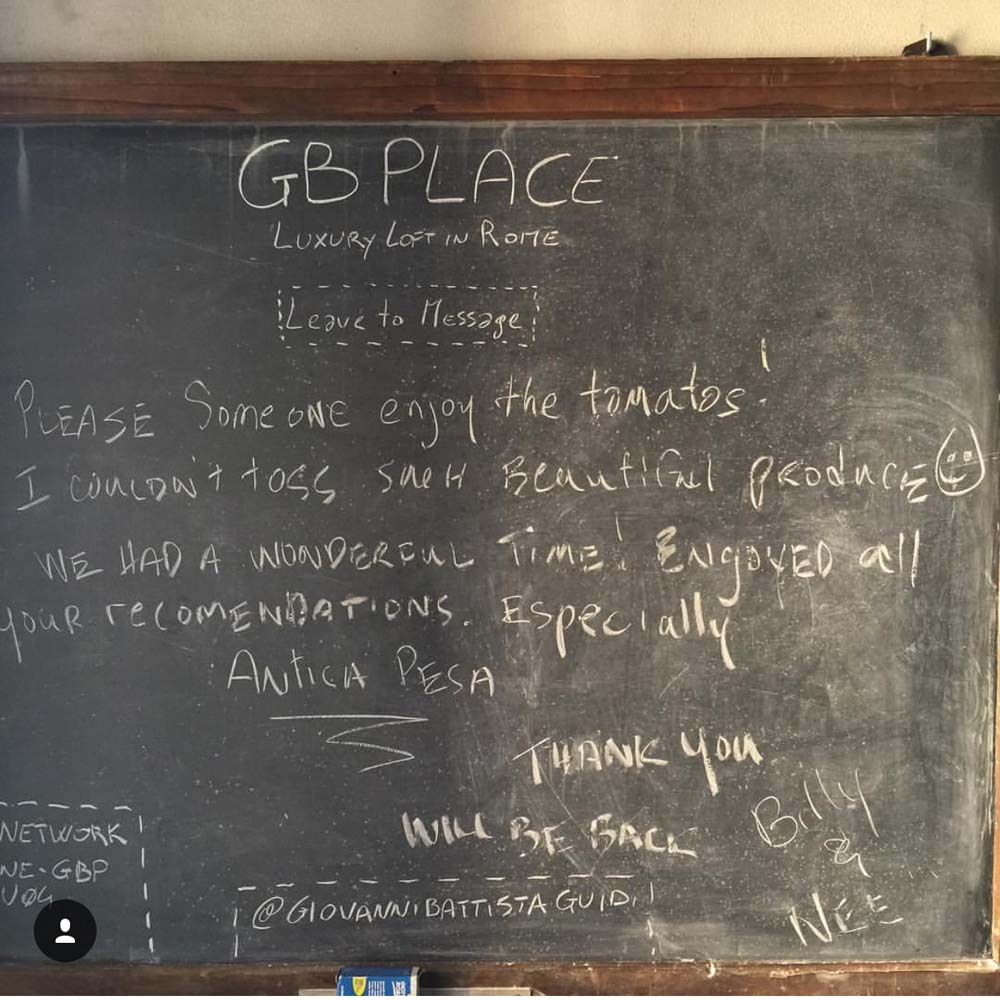 GB PLACE
LUXURY LOFT IN ROME
Leave to Message
PLEASE SomeONE enjoy the tomatos!
I COULDN'T TOSS SUCH BeautiFul PRODUCE
WE HAD A WONDERFUL TIME! ENGOYED all
YOUR recOMENDATIONS. Especially
ANTICA PESA
THANK YOU
WILL BE BACK
Billy
&
NEE
NETWORK
NE-GBP
@GIOVANNIBATTISTAGUIDI